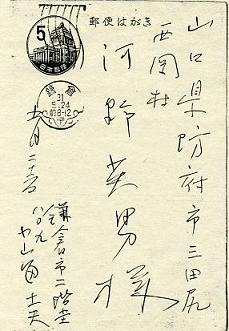 郵便はがき
5
日本郵便
鎌倉
31
5.24
前8-12
山口県防府市三田尻
西岡村
河野英男様
五月二三日
鎌倉市二階堂